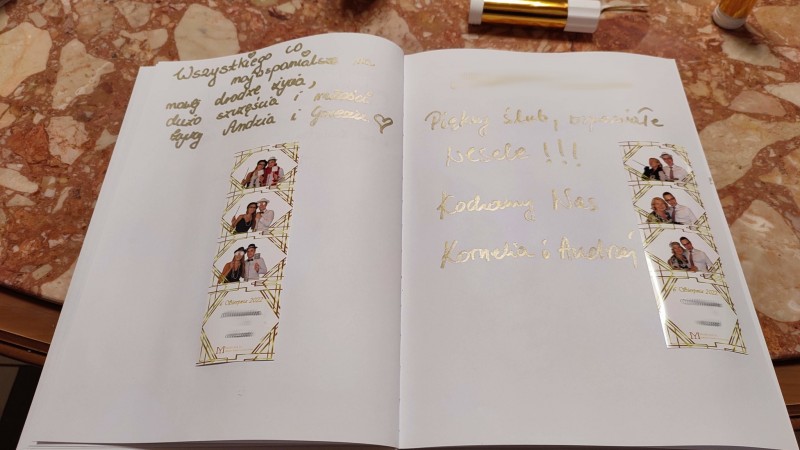 Wszystkiego co
najwspanialsze na
nowej drodze życia,
dużo szczęścia i
życzą Andzia i
Piękny ślub, wspaniałe
wesele !!!
Kochamy Was
Kornelia i Andrzej
Sierpnia 2022